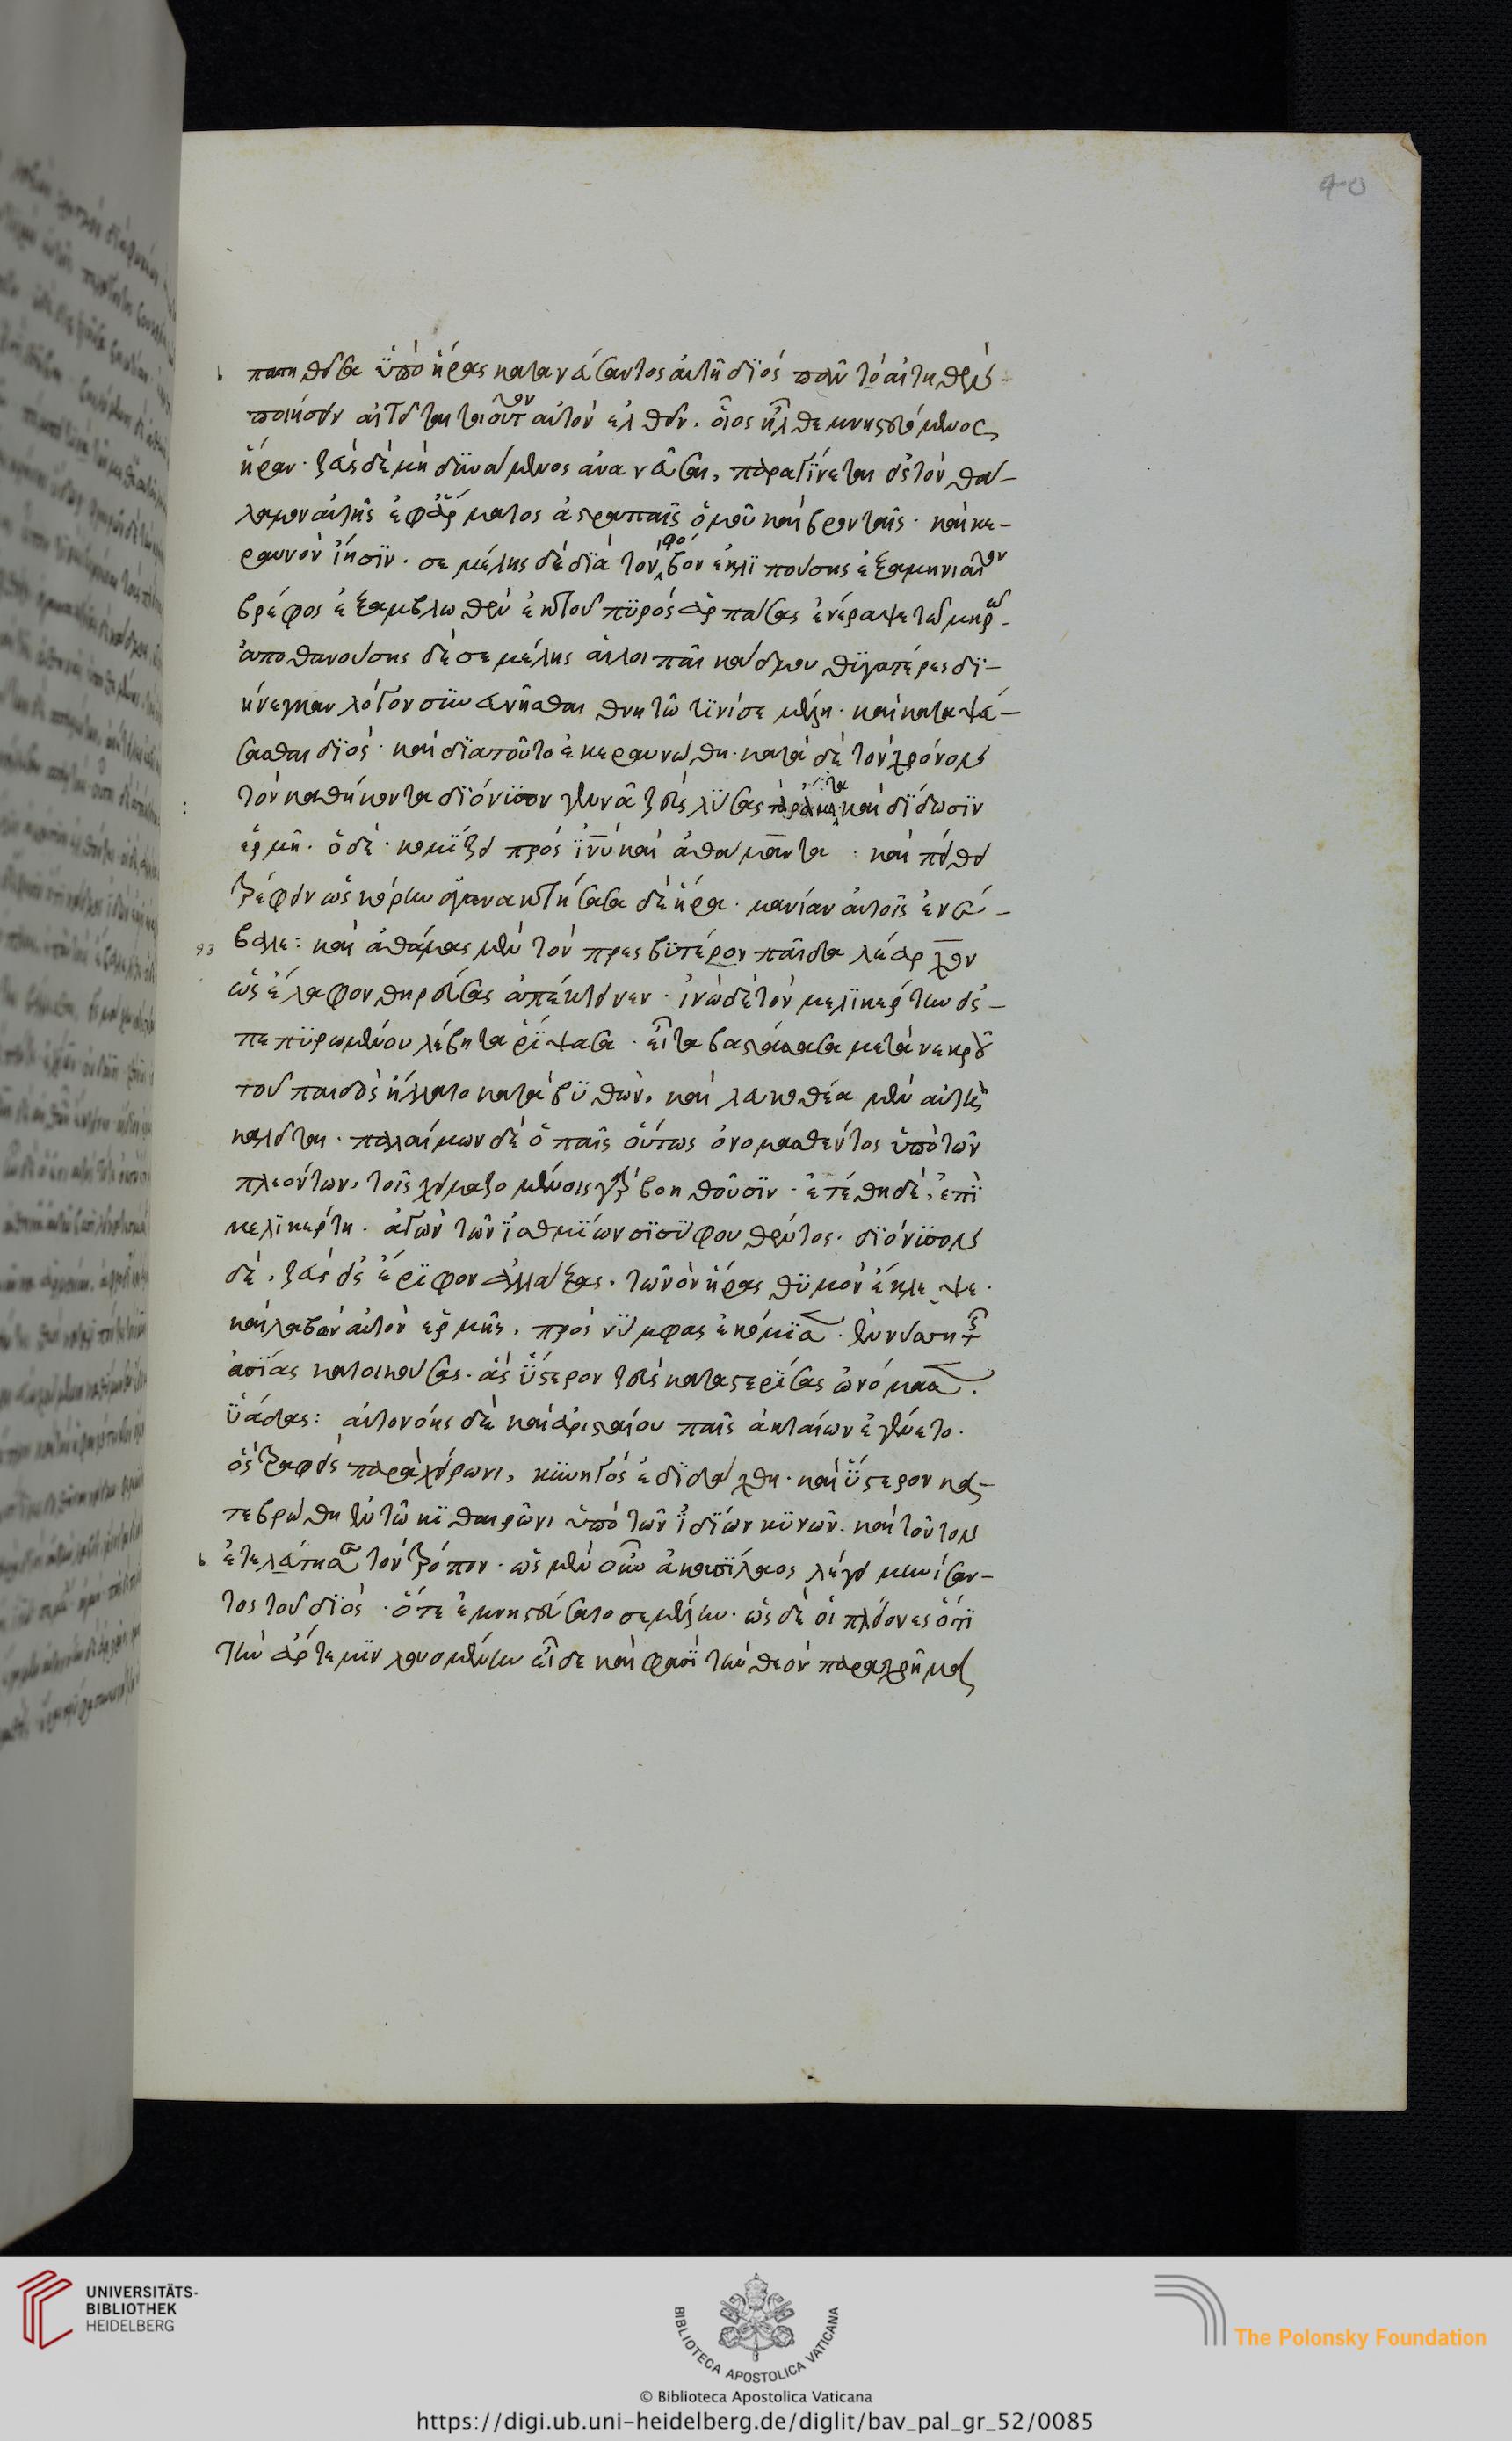 40
πατηθεῖσα ὑπὸ ἥρας κατανεύσαντος αὐτῆ διὸς πᾶν τὸ αἰτηθὲν
ποιήσειν αἰτεῖται τοιοῦτον αὐτὸν ἐλθεῖν. οἷος ἦλθε μνηστευόμενος
ἥραν· ζεὺς δὲ μὴ δυνάμενος ἀνανεῦσαι, παραγίνεται εἰς τὸν θά-
λαμον αὐτῆς ἐφ᾽ ἅρματος ἀστραπαῖς ὁμοῦ καὶ βρονταῖς· καὶ κε-
ραυνὸν ἵησιν. σεμέλης δὲ διὰ τὸν φόβον ἐκλιπούσης ἑξαμηνιαῖον
βρέφος ἐξαμβλωθὲν ἐκ τοῦ πυρὸς ἁρπάσας ἐνέραψε τῶ μηρῶ.
ἀποθανούσης δὲ σεμέλης αἱ λοιπαὶ κάδμου θυγατέρες δι-
ήνεγκαν λόγον συνευνῆσθαι θνητῶ τινὶ σεμέλη· καὶ καταψεύ-
σασθαι διός· καὶ διατοῦτο ἐκεραυνώθη· κατὰ δὲ τὸν χρόνον
τὸν καθήκοντα διόνυσον γεννᾶ ζεὺς λύσας τὰ ῥάμματα καὶ δίδωσιν
ἑρμῆ. ὁ δὲ· κομίζει πρὸς ἰνὺ καὶ ἀθάμαντα· καὶ πείθει
τρέφειν ὡς κόρην ἀγανακτήσασα δὲ ἥρα· μανίαν αὐτοῖς ἐνέ-
93 βαλε: καὶ ἀθάμας μὲν τὸν πρεσβύτερον παῖδα λέαρχον
ὡς ἔλαφον θηρεύσας ἀπέκτεινεν· ἰνὼ δὲ τὸν μελικέρτην εἰς
πεπυρωμένον λέβητα ῥίψασα· εἶτα βαστάσασα μετὰ νεκροῦ
τοῦ παιδὸς ἥλλατο κατὰ βυθῶν. καὶ λευκοθέα μὲν αὐτὴν
καλεῖται· παλαίμων δὲ ὁ παῖς οὕτως ὀνομασθέντος ὑπὸ τῶν
πλεόντων, τοῖς χειμαζομένοις γὰρ βοηθοῦσιν· ἐτέθη δὲ, ἐπὶ
μελικέρτη. ἀγὼν τῶν ἰσθμίων σισύφου θέντος. διόνυσον
δὲ, ζεὺς εἰς ἔριφον ἀλλάξας. τὸν ὃν ἥρας θυμὸν ἔκλεψε.
καὶ λαβὼν αὐτὸν ἑρμῆς, πρὸς νύμφας ἐκόμισεν. ἐν νύση τῆς
ἀσίας κατοικούσας. ἃς ὕστερον ζεὺς καταστερίσας ὠνόμασεν.
ὑάδας: αὐτονόης δὲ καὶ ἀρισταίου παῖς ἀκταίων ἐγένετο.
ὃς τραφεὶς παρὰ χείρωνι, κυνηγὸς ἐδιδάχθη· καὶ ὕστερον κα-
τεβρώθη ἐν τῶ κιθαιρῶνι ὑπὸ τῶν ἰδίων κυνῶν. καὶ τοῦτον
ἐτελεύτησε τὸν τρόπον· ὡς μὲν οὖν ἀκουσίλαος λέγει μηνίσαν-
τος τοῦ διός· ὅτε ἐμνηστεύσατο σεμέλην. ὡς δὲ οἱ πλείονες ὅτι
τὴν ἄρτεμιν λουομένην εἶδε καὶ φασὶ τὴν θεὸν παραχρῆμα
UNIVERSITÄTS-
BIBLIOTHEK
HEIDELBERG
BIBLIOTECA APOSTOLICA VATICANA
The Polonsky Foundation
© Biblioteca Apostolica Vaticana
https://digi.ub.uni-heidelberg.de/diglit/bav_pal_gr_52/0085